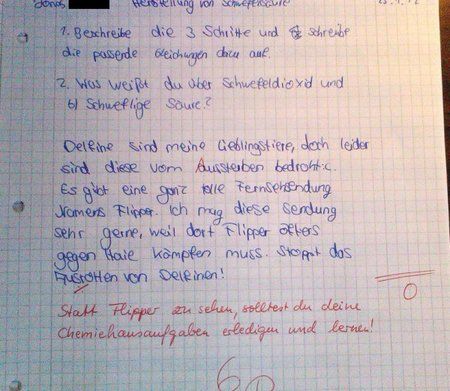 Jonas Herstellung von Schwefelsäure
1. Beschreibe die 3 Schritte und schreibe
die passende Gleichungen dazu auf.
2. Was weißt du über Schwefeldioxid und
b) Schweflige Säure?
Delfine sind meine Lieblingstiere, doch leider
sind diese vom Aussterben bedroht.
Es gibt eine ganz tolle Fernsehsendung
Namens Flipper. Ich mag diese Sendung
sehr gerne, weil dort Flipper öfters
gegen Haie kämpfen muss. Stoppt das
Ausrotten von Delfinen!
0
Statt Flipper zu sehen, solltest du deine
Chemiehausaufgaben erledigen und lernen!
6